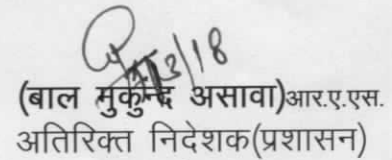 7/3/18
(बाल मुकुन्द असावा)आर.ए.एस.
अतिरिक्त निदेशक(प्रशासन)